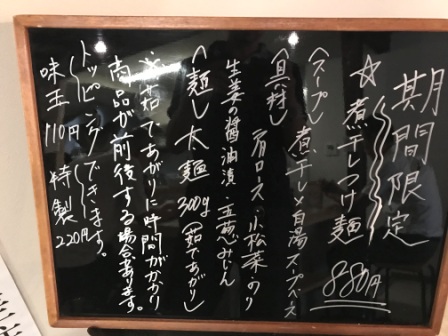 期間限定
☆煮干しつけ麺 880円
〈スープ〉煮干し×白湯スープベース
〈具材〉肩ロース・小松菜・のり
生姜の醤油漬・玉葱みじん
〈麺〉太麺 300g (茹であがり)
※茹であがりに時間がかかり
商品が前後する場合あります。
トッピングできます。
味玉 110円 特製 220円